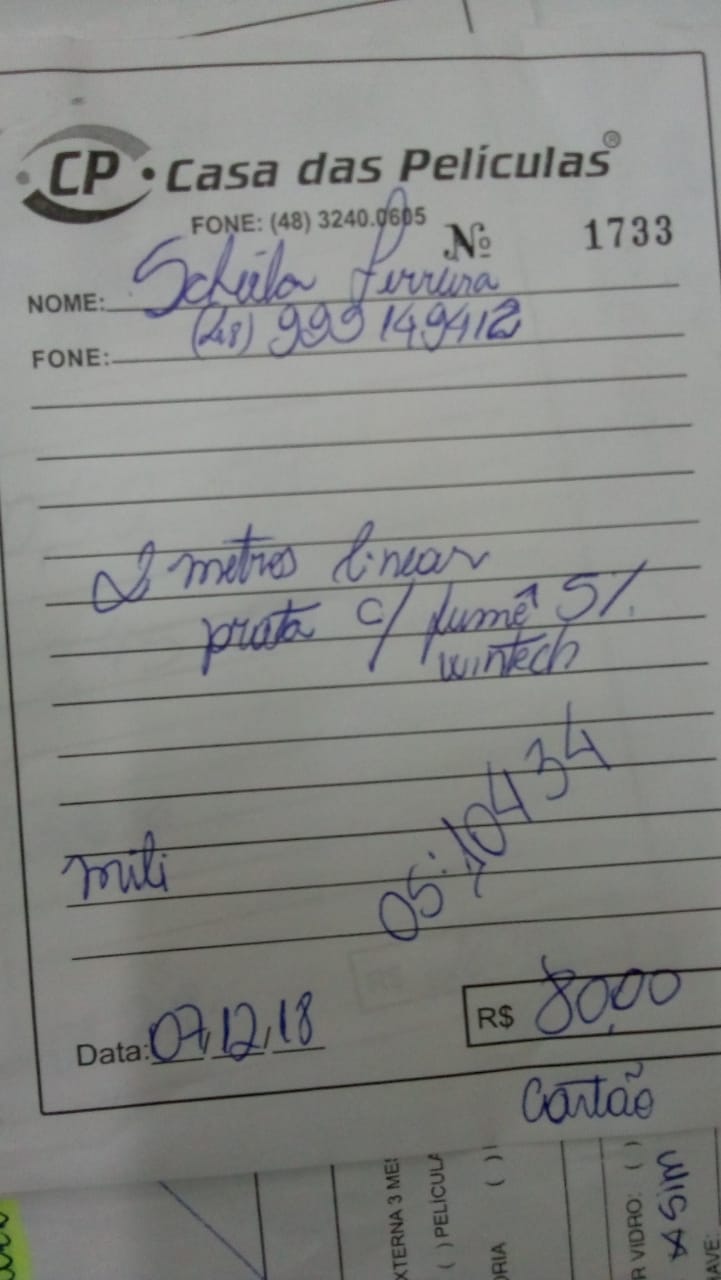 CP • Casa das Películas®
FONE: (48) 3240.0605
Nº 1733
NOME: Scheila Ferreira
FONE: (48) 999149412
2 metros linear
prata c/ fumê 5%
wintech
05:10434
mili
Data: 07,12,18
R$ 80,00
Cartão
XTERNA 3 ME
( ) PELÍCULA
ORIA ( )
R VIDRO: ( )
x Sim
AVE: